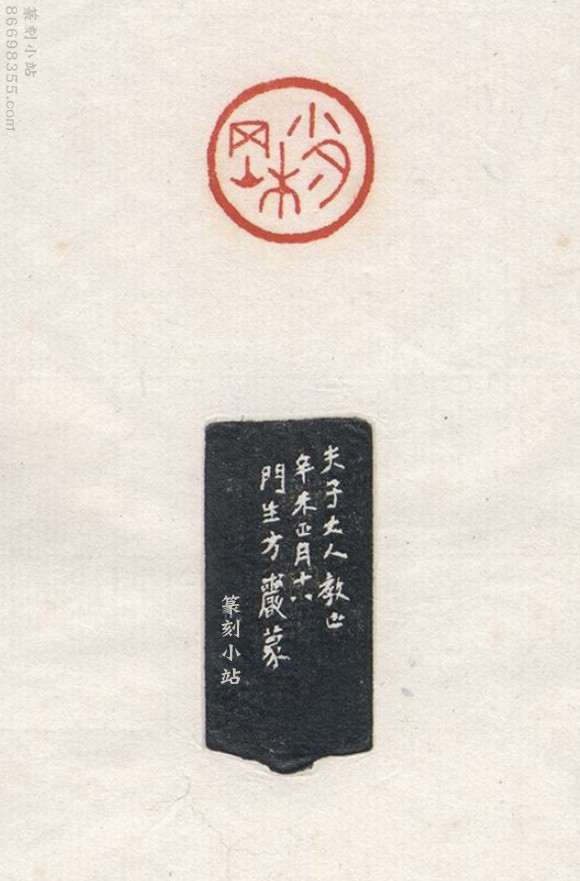 夫子大人教正
辛未正月十
門生方巖篆
篆刻小站
篆刻小站
86698355.com